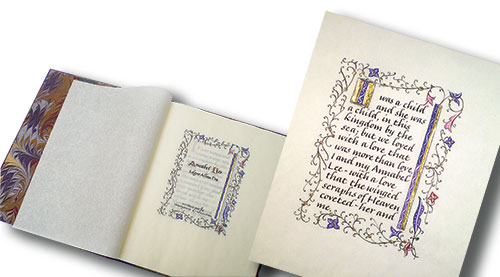 Annabel Lee
Edgar Allan Poe
I was a child
and she was
a child, in this
kingdom by the
sea; but we loved
with a love that
was more than love
and my Annabel
Lee - with a love
that the winged
seraphs of Heaven
coveted - her and
me.